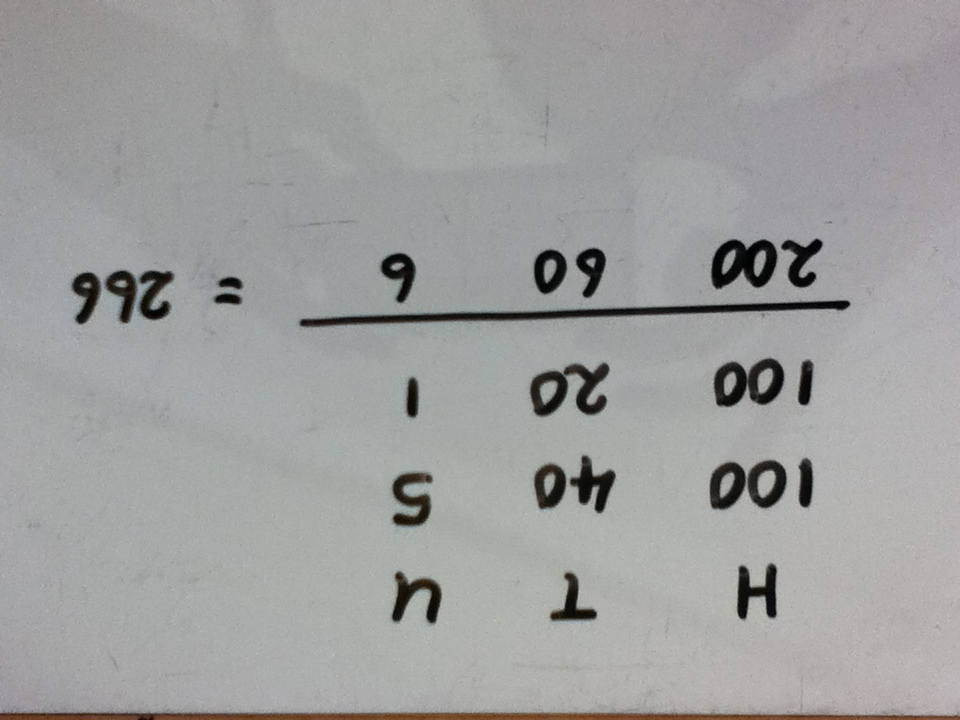 H T U
100 40 5
100 20 1
200 60 6 = 266